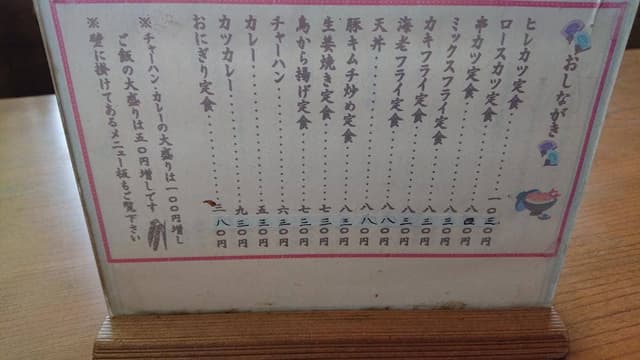 おしながき
ヒレカツ定食 一〇三〇円
ロースカツ定食 八四〇円
串カツ定食 八三〇円
ミックスフライ定食 八三〇円
カキフライ定食 八三〇円
海老フライ定食 八八〇円
天丼 八八〇円
豚キムチ炒め定食 八三〇円
生姜焼き定食 七三〇円
鳥から揚げ定食 七三〇円
チャーハン 六三〇円
カレー 五三〇円
カツカレー 九三〇円
おにぎり定食 二八〇円
※チャーハン・カレーの大盛りは一〇〇円増し
ご飯の大盛りは五〇円増しです
※壁に掛けてあるメニュー板もご覧下さい